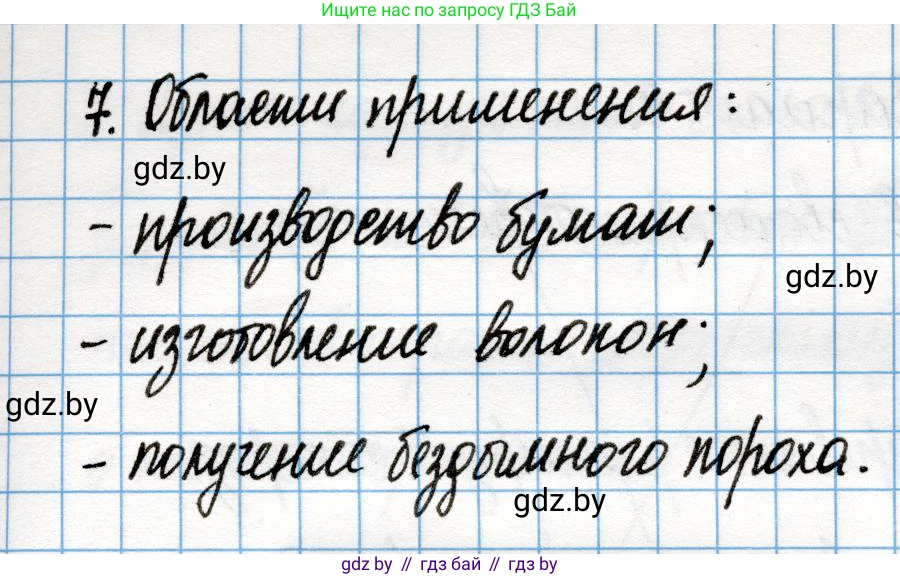 Ищите нас по запросу ГДЗ Бай
7. Области применения:
gdz.by
- производство бумаги;
gdz.by
- изготовление волокон;
gdz.by
- получение бездымного пороха.
gdz.by
gdz.by // гдз бай // gdz.by